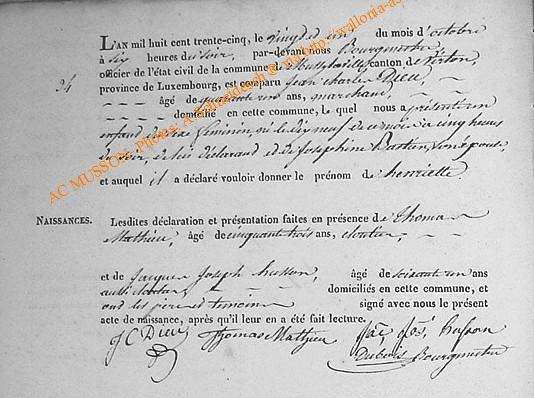 L'AN mil huit cent trente-cinq, le vingt et un, du mois d'octobre
à six heures du soir, par-devant nous Bourgmestre
officier de l'état civil de la commune de Mussy la ville, canton de Virton,
24
province de Luxembourg, est comparu Jean Charles Dieu,
âgé de quarante un ans, marchand,
domicilié en cette commune, lequel nous a présenté un
enfant du sexe féminin, né le dix neuf de ce mois à cinq heures
du soir, de lui déclarant et de Josephine son épouse,
et auquel il a déclaré vouloir donner le prénom de henriette.
NAISSANCES. Lesdites déclaration et présentation faites en présence de Thomas
Mathieu, âgé de cinquante trois ans, cloutier,
et de Jacques Joseph husson, âgé de soixante un ans
aussi cloutier, domiciliés en cette commune, et
ont les père et témoins signé avec nous le présent
acte de naissance, après qu'il leur en a été fait lecture.
J C Dieu Thomas Mathieu Jac Jos husson
Dubois Bourgmestre
AC MUSSON- Photos: A